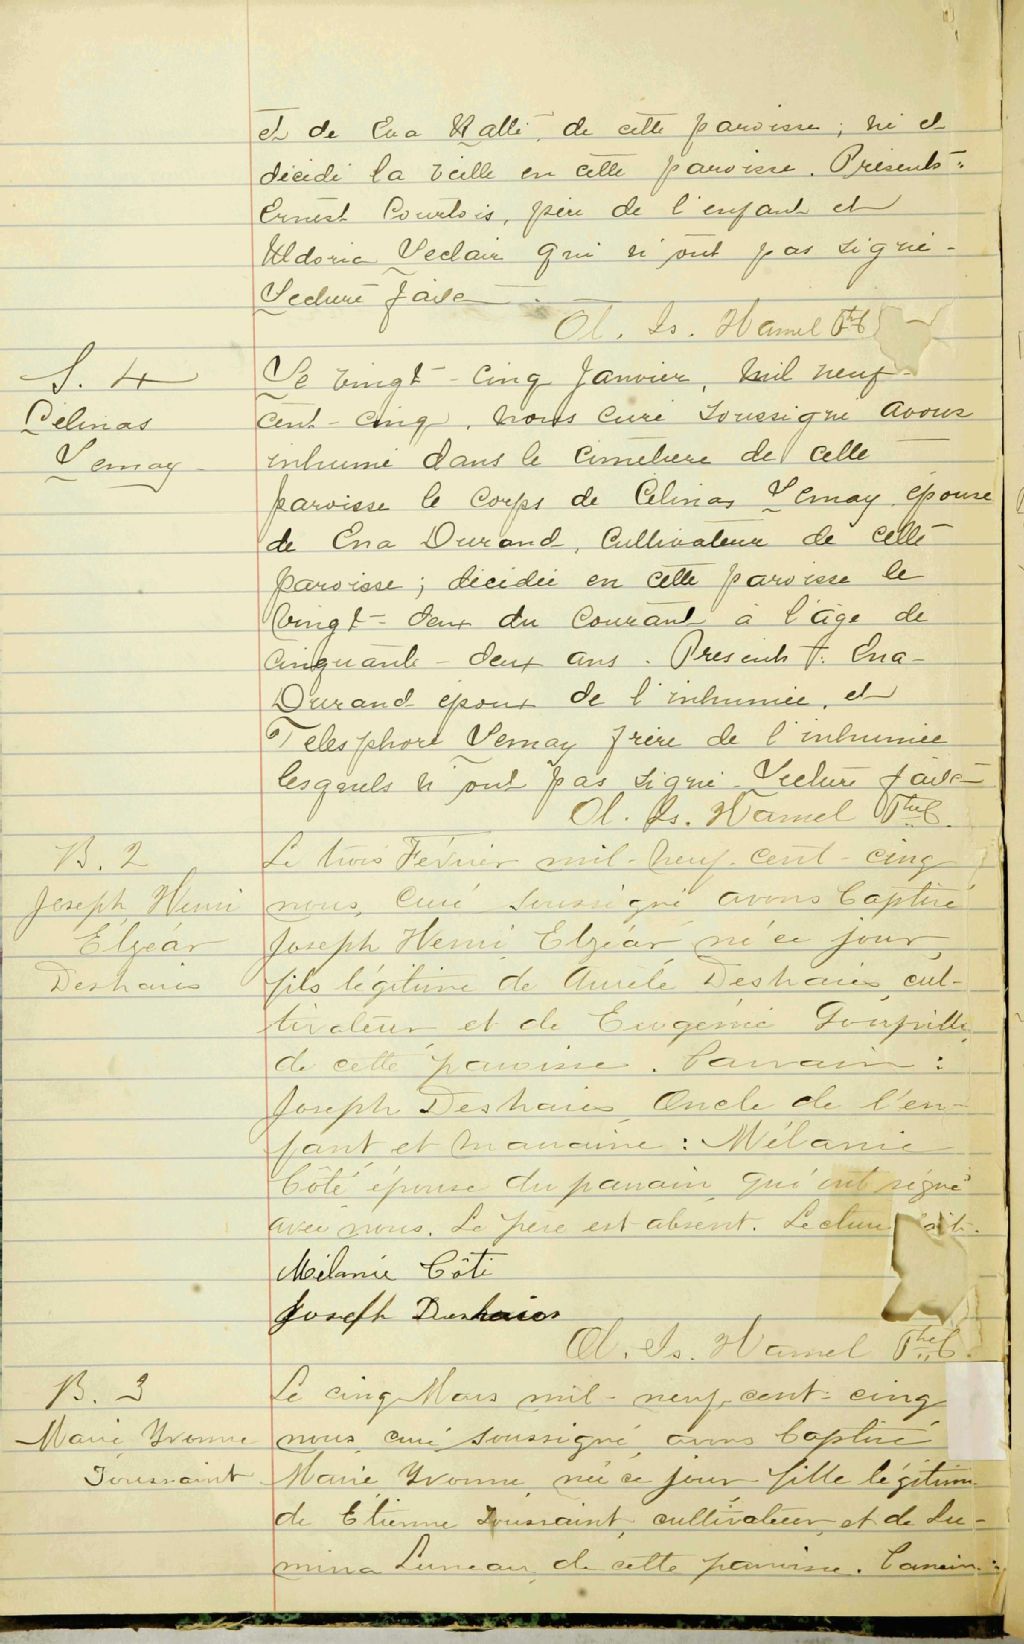 et de Eva Hallé, de cette paroisse ; né et
décédé la veille en cette paroisse. Présents :
Ernest Courtois, père de l'enfant et
Aldoria Leclair qui n'ont pas signé -
Lecture faite
Ol. Is. Hamel Ptre
S. 4
Célinas
Lemay
Le vingt-cinq Janvier, mil neuf-
cent-cinq, nous curé soussigné avons
inhumé dans le cimetière de cette
paroisse le corps de Célinas Lemay, épouse
de Ena Durand, cultivateur de cette
paroisse ; décédée en cette paroisse le
vingt-deux du courant à l'âge de
cinquante-deux ans. Présents : Ena
Durand époux de l'inhumée, et
Télesphore Lemay frère de l'inhumée
lesquels n'ont pas signé. Lecture faite
Ol. Is. Hamel Ptre C.
B. 2
Joseph Henri
Elzéar
Deshaies
Le trois Février mil-neuf-cent-cinq
nous, curé soussigné avons baptisé
Joseph Henri Elzéar né ce jour
fils légitime de Aurèle Deshaies cul-
tivateur et de Eugénie
de cette paroisse. Parrain :
Joseph Deshaies Oncle de l'en-
fant et marraine : Mélanie
Côté épouse du parrain qui ont signé
avec nous. Le père est absent. Lecture faite.
Mélanie Côté
Joseph Deshaies
Ol. Is. Hamel Ptre C.
B. 3
Marie Yvonne
Toussaint
Le cinq Mars mil-neuf-cent-cinq
nous, curé soussigné, avons baptisé
Marie Yvonne, née ce jour fille légitime
de Etienne Toussaint, cultivateur, et de Lu-
mina Luneau de cette paroisse. Parrain :